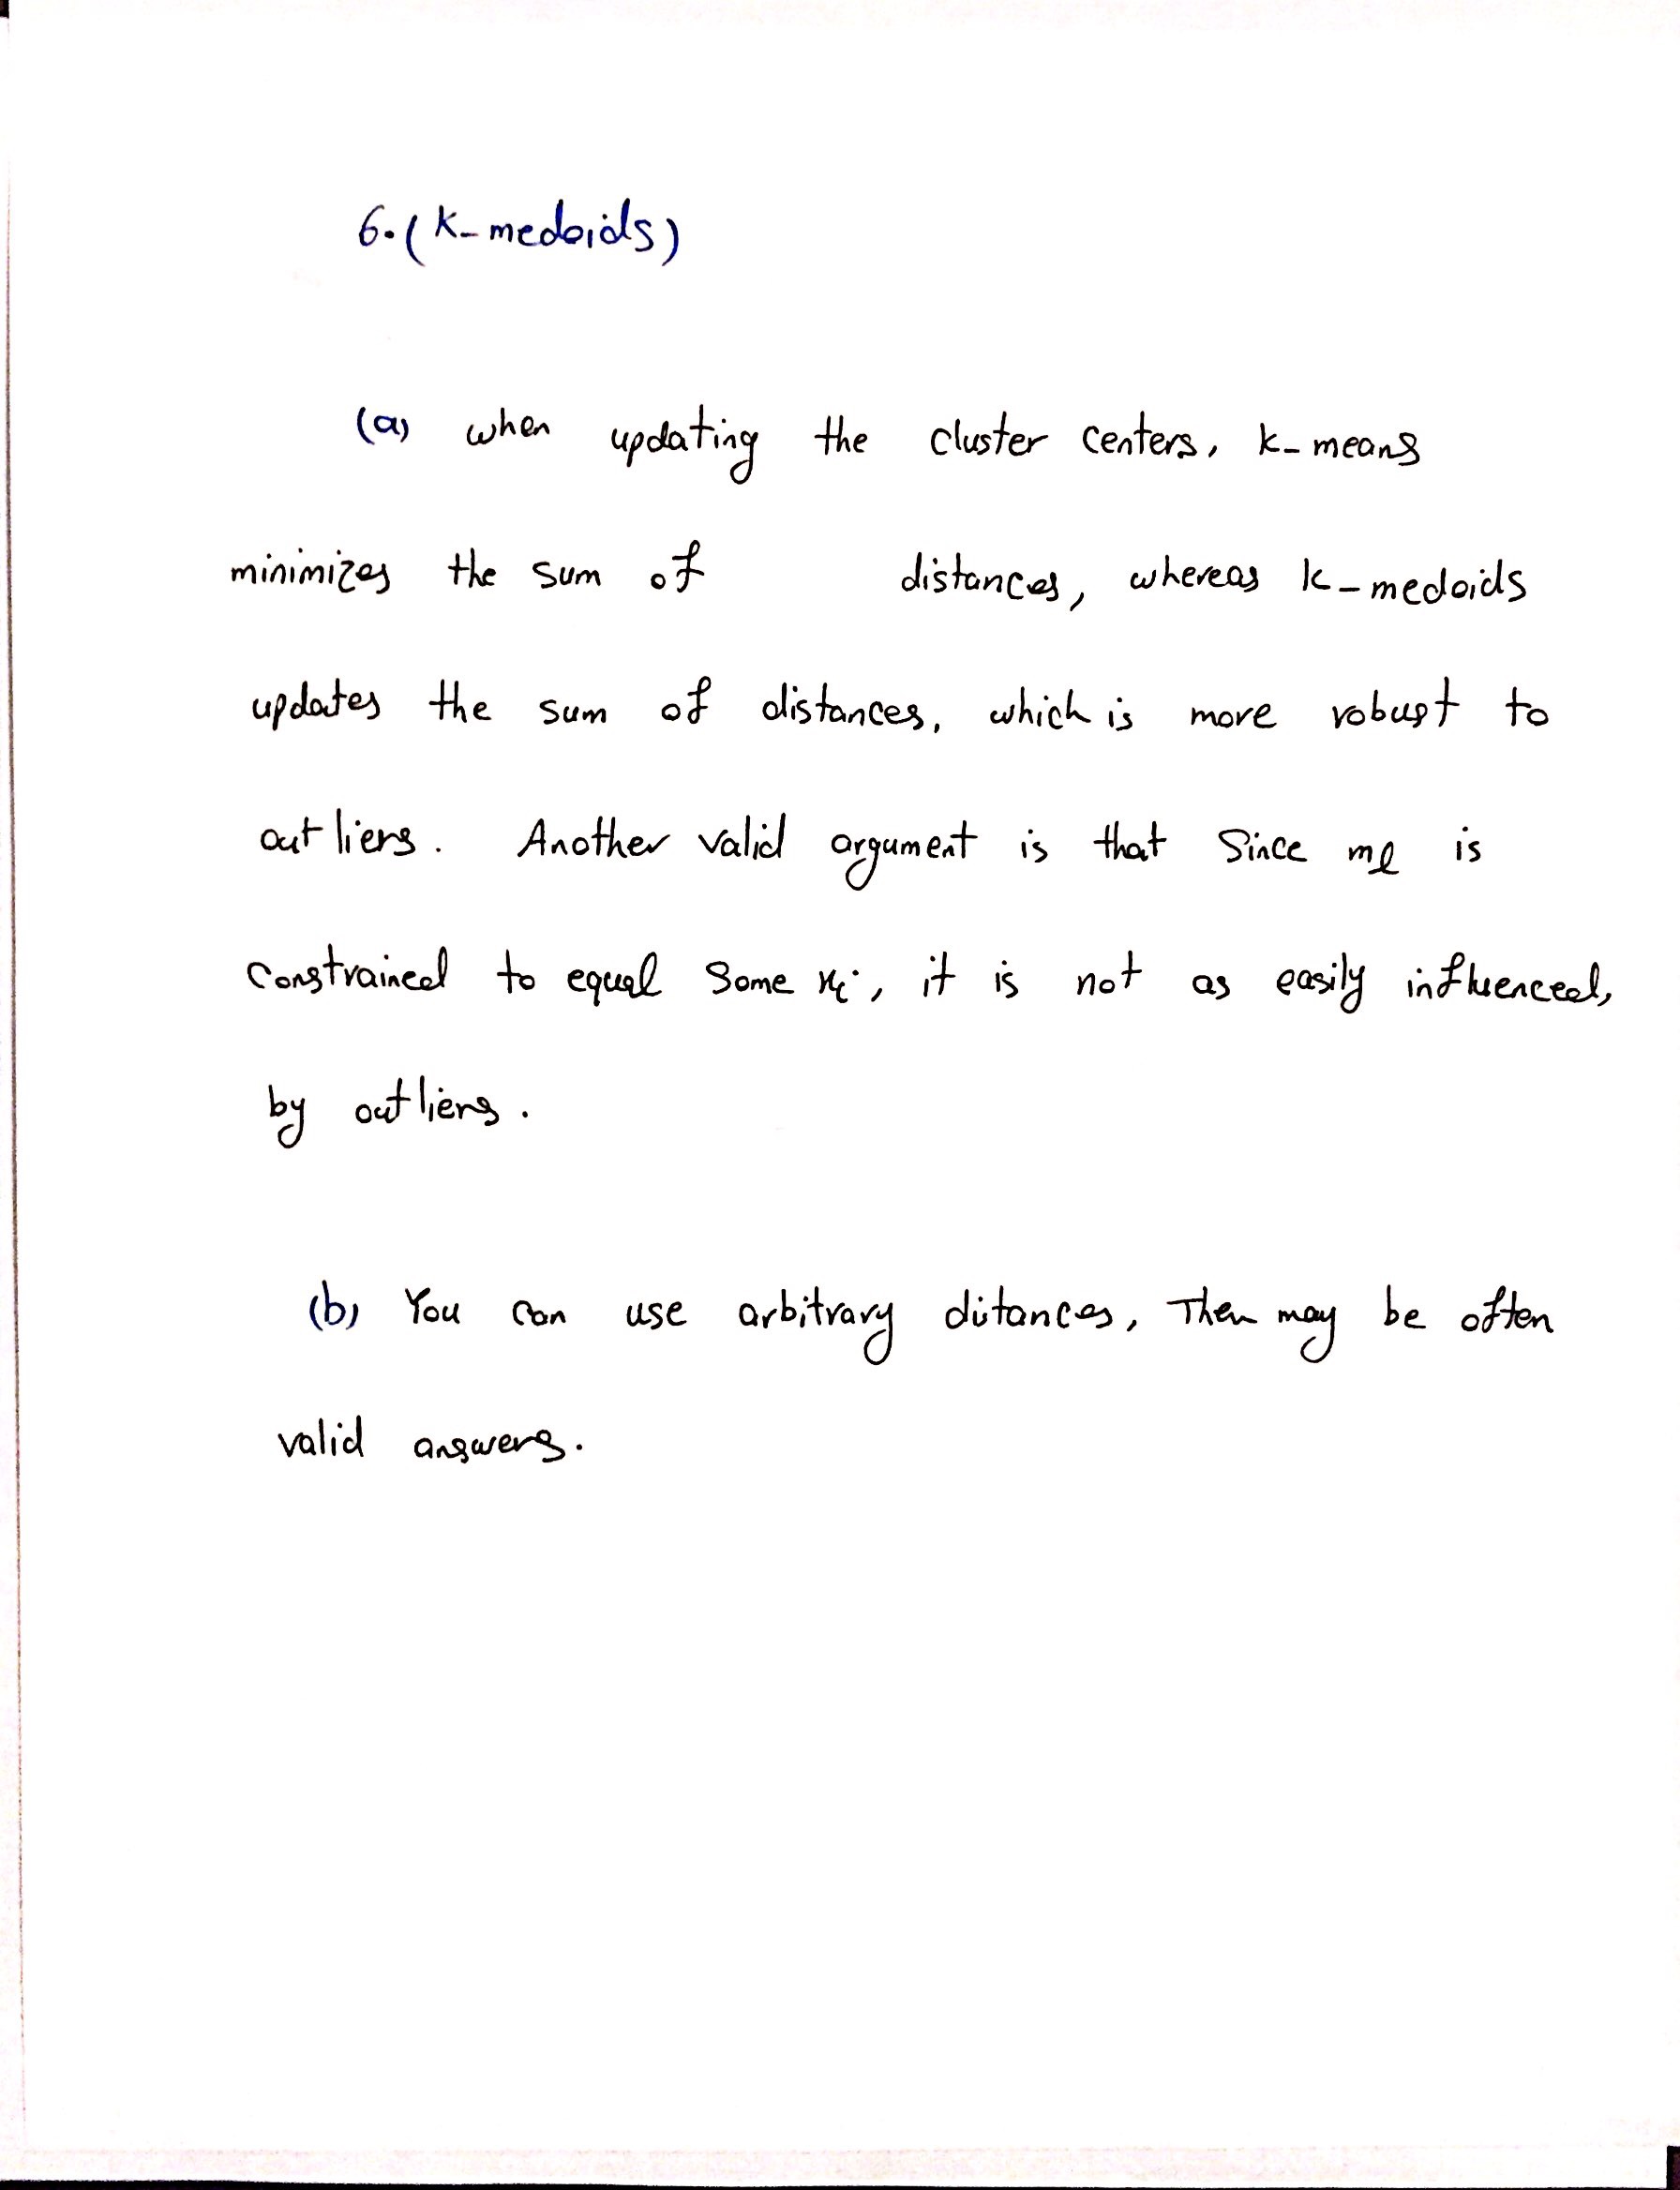 6. (K-medoids)
(a) when updating the cluster centers, k-means
minimizes the sum of distances, whereas k-medoids
updates the sum of distances, which is more robust to
outliers. Another valid argument is that Since mℓ is
Constrained to equal Some xi, it is not as easily influenced,
by outliers.
(b) You can use arbitrary distances, Then may be often
valid answers.